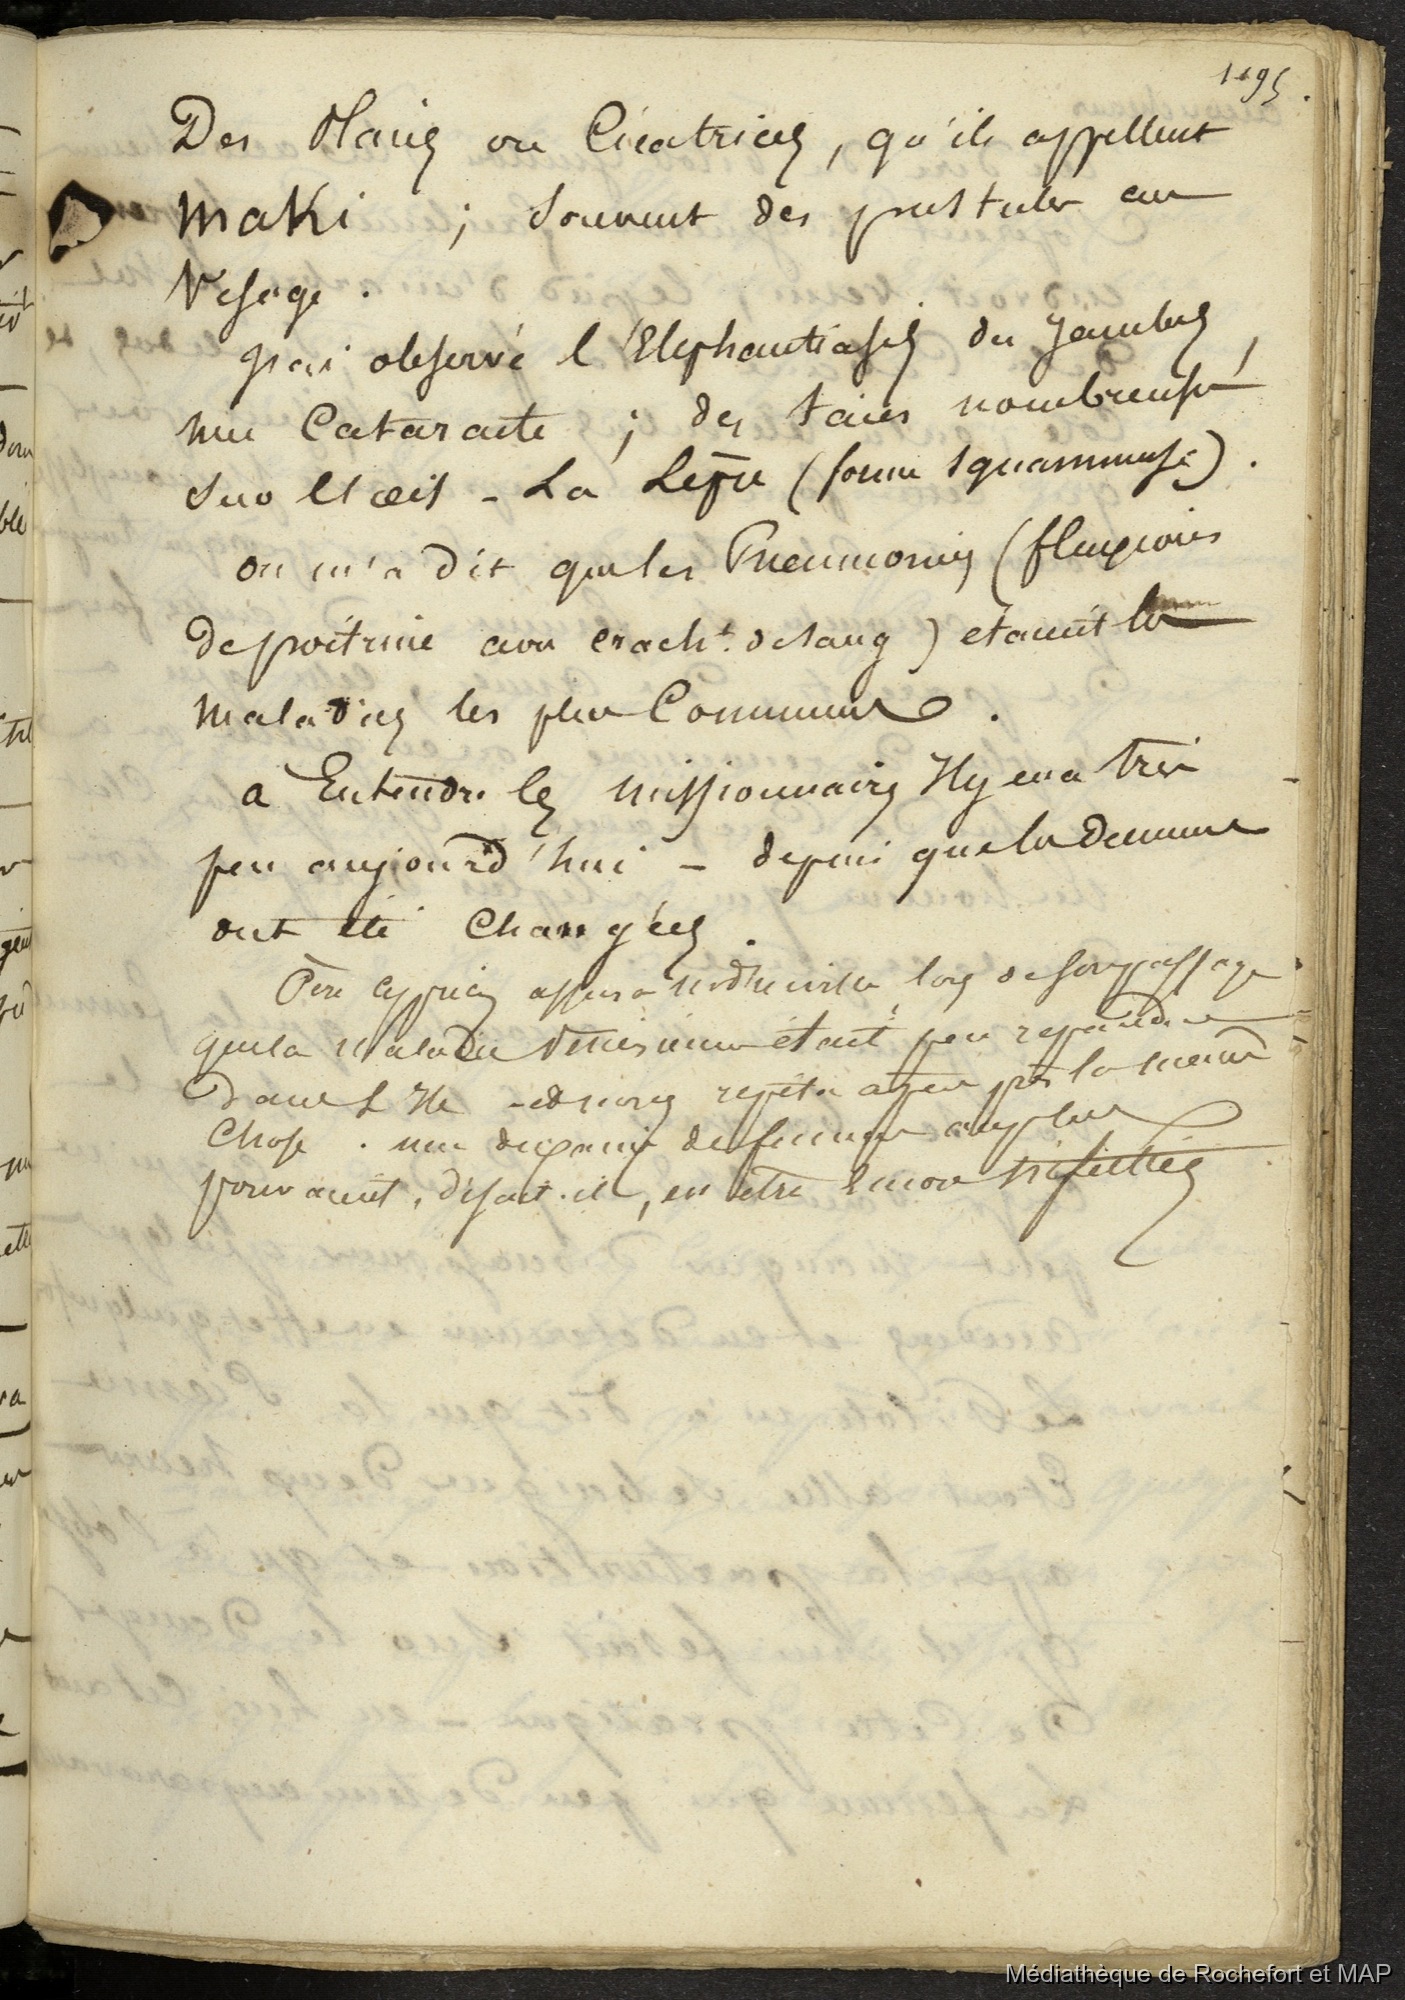 1195.
Des Plaies ou Cicatrices, qu'ils appellent
Maki ; souvent des pustules au
Visage.
J'ai observé l'Elephantiasis des Jambes,
une Cataracte ; des taies nombreuses
sur l'œil - La Lèpre (forme squammeuse).
on m'a dit que les Pneumonies (fluxions
de poitrine avec crach.t de sang) étaient les
maladies les plus Communes.
a Entendre les missionnaires Il y en a très
peu aujourd'hui - depuis que les
ont été changées.
Père Cyprien assura lors de son passage
que la maladie vénérienne était peu repandue
Dans L'Ile - repéta a peu près la meme
Chose. une dixaine de femmes au plus
pouvaient, disait-il, en être Encore infectées
Médiathèque de Rochefort et MAP